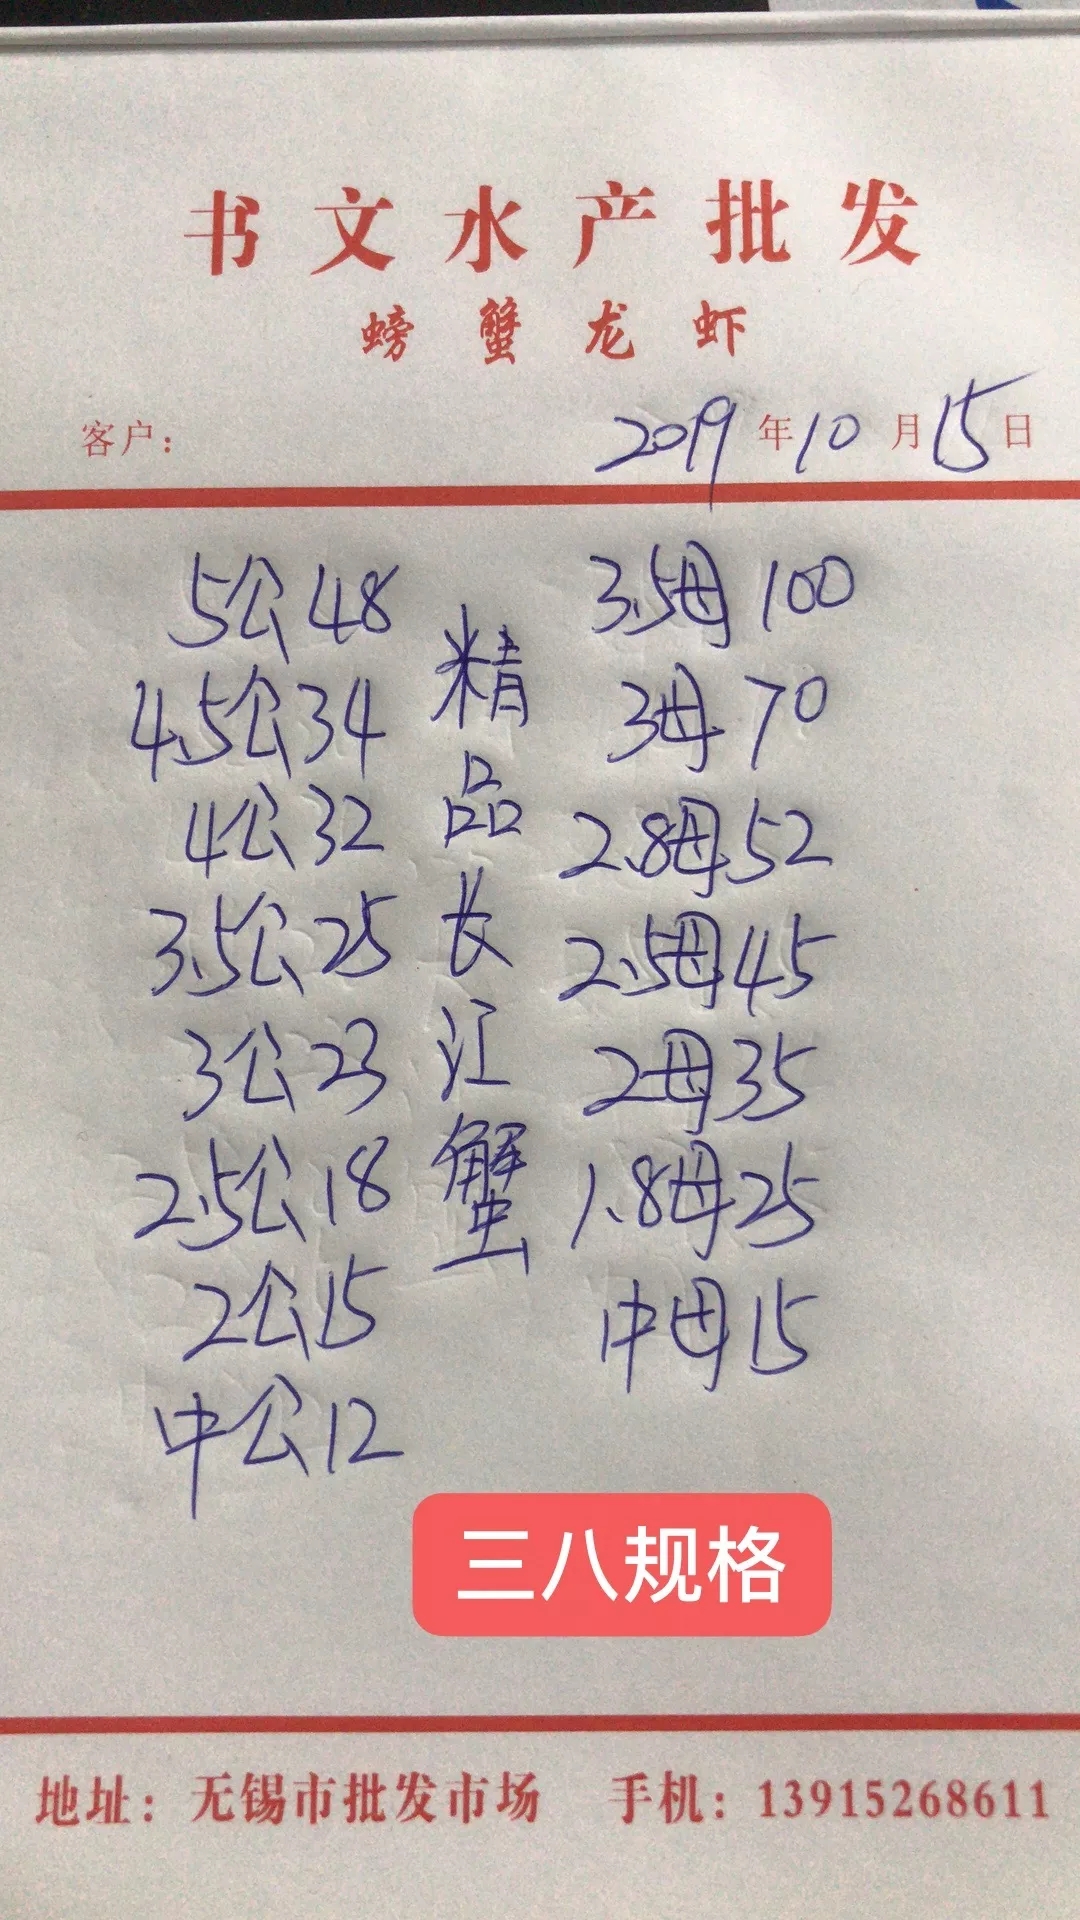 书文水产批发
螃蟹龙虾
客户：
2019年10月15日
5公48
4.5公34
4公32
3.5公25
3公23
2.5公18
2公15
中公12
精品长江蟹
3.5母100
3母70
2.8母52
2.5母45
2母35
1.8母25
中母15
三八规格
地址：无锡市批发市场 手机：13915268611